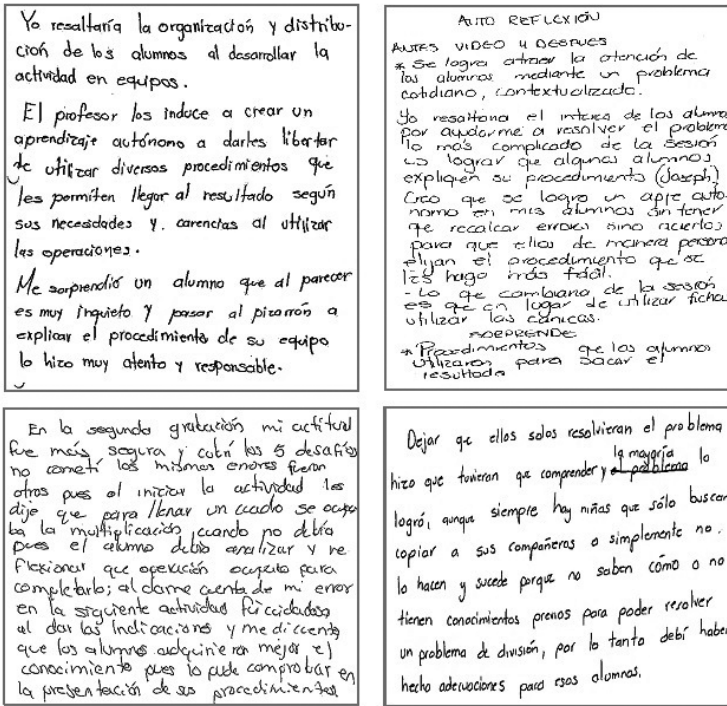 Yo resaltaría la organización y distribu-
ción de los alumnos al desarrollar la
actividad en equipos.
El profesor los induce a crear un
aprendizaje autónomo a darles libertar
de utilizar diversos procedimientos que
les permiten llegar al resultado según
sus necesidades y carencias al utilizar
las operaciones.
Me sorprendió un alumno que al parecer
es muy inquieto y pasar al pizarrón a
explicar el procedimiento de su equipo
lo hizo muy atento y responsable.
AUTO REFLEXIÓN
ANTES VIDEO Y DESPUES
* Se logra atraer la atención de
los alumnos mediante un problema
cotidiano, contextualizado.
Yo resaltaria el interes de los alumnos
por ayudarme a resolver el problema
lo más complicado de la sesión
es lograr que algunos alumnos
expliquen su procedimiento (Joseph)
Creo que se logro un apre auto-
nomo en mis alumnos sin tener
que recalcar errores sino aciertos
para que ellos de manera persona
elijan el procedimiento que se
les hago más fácil.
- Lo que cambiaria de la sesión
es que en lugar de utilizar fichas
utilizar las canicas.
SORPRENDE
* Procedimientos que los alumnos
utilizaron para sacar el
resultado
En la segunda grabación mi actitud
fue más segura y cubrí los 5 desafíos
no cometí los mismos errores fueron
otros pues al iniciar la actividad les
dije que para llenar un cuadro se ocupa
ba la multiplicación cuando no debía
pues el alumno debío analizar y re
flexionar que operación ocuparia para
completarlo; al darme cuenta de mi error
en la siguiente actividad fui cuidadosa
al dar las indicaciones y me di cuenta
que los alumnos adquirieron mejor el
conocimiento pues lo pude comprobar en
la presentación de sus procedimientos
Dejar que ellos solos resolvieran el problema
hizo que tuvieran que comprender y la mayoría lo
logró, aunque siempre hay niñas que sólo buscan
copiar a sus compañeros o simplemente no
lo hacen y sucede porque no saben cómo o no
tienen conocimientos previos para poder resolver
un problema de división, por lo tanto debí haber
hecho adecuaciones para esos alumnos.